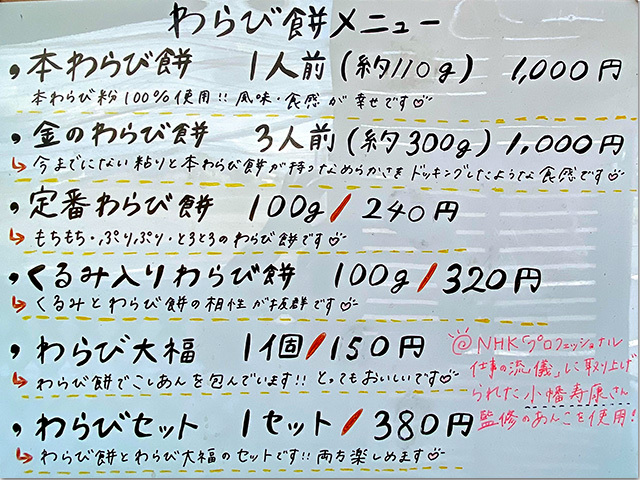 わらび餅メニュー
，本わらび餅 1人前(約110g) 1,000円
本わらび粉100%使用!! 風味・食感が幸せです
，金のわらび餅 3人前(約300g) 1,000円
↳今までにない粘りと本わらび餅が持つなめらかさをドッキングしたような食感です
，定番わらび餅 100g/240円
↳もちもち・ぷりぷり・とろとろのわらび餅です
，くるみ入りわらび餅 100g/320円
↳くるみとわらび餅の相性が抜群です
，わらび大福 1個/150円
↳わらび餅でこしあんを包んでいます!! とってもおいしいです
@NHK「プロフェッショナル
仕事の流儀」に取り上げ
られた小幡寿康さん
監修のあんこを使用!
，わらびセット 1セット/380円
↳わらび餅とわらび大福のセットです!! 両方楽しめます